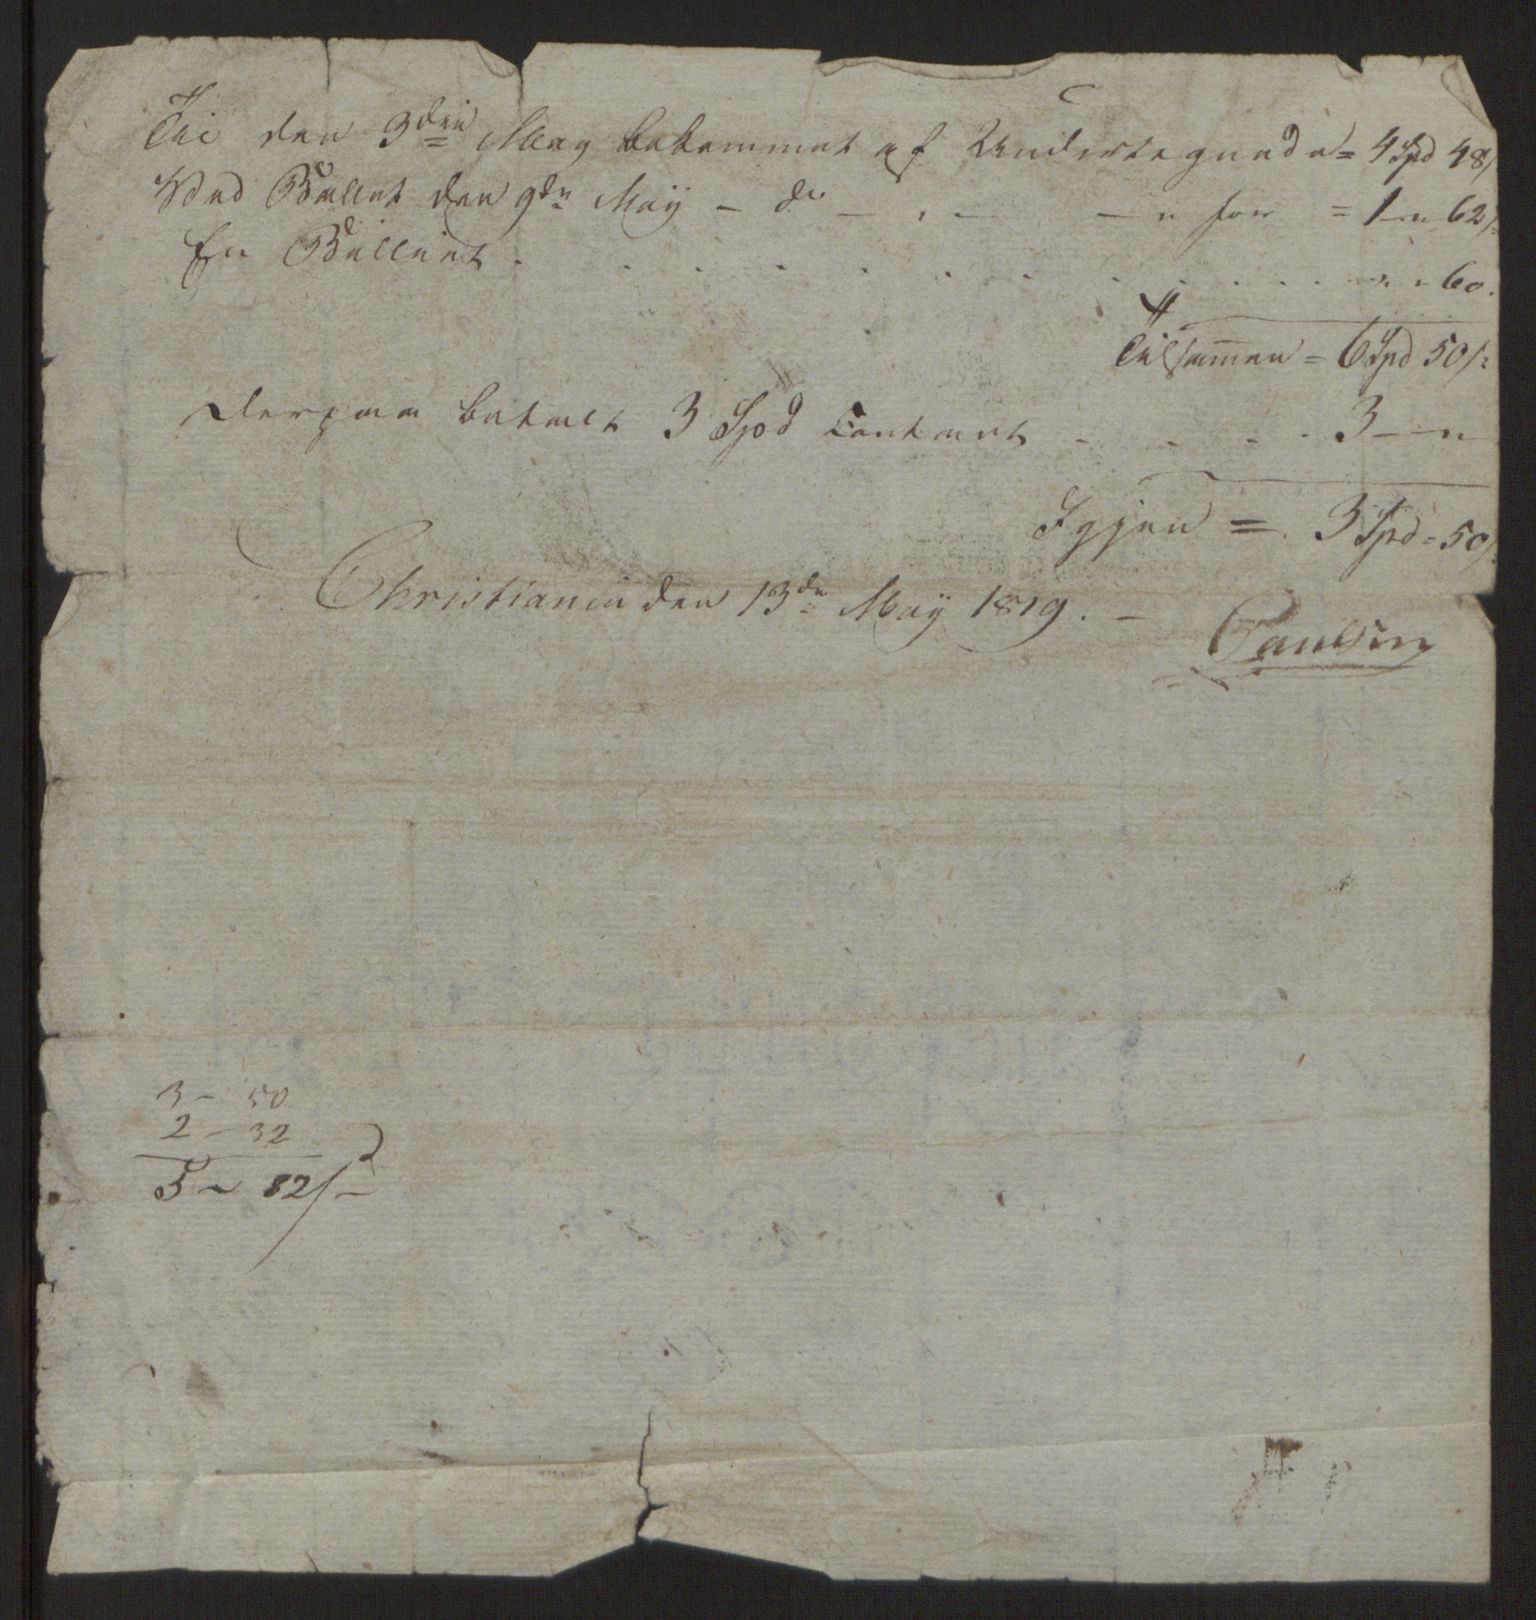 Til den 3den May bekommet af Undertegnede = 4 Spd 48/
Ved Ballet den 9de May – do – " – – " for = 1 – " 62/:
En Billiet . . . . . . . . . . . . . " " 60.
Tilsammen = 6 Spd 50/:
Derpaa betalt 3 Spd Contant . . . . 3 – – "
Igjen = 3 Spd = 50/
Christiania den 13de May 1819. –
Paulsen
3 – 50
2 – 32
5 – 82/–